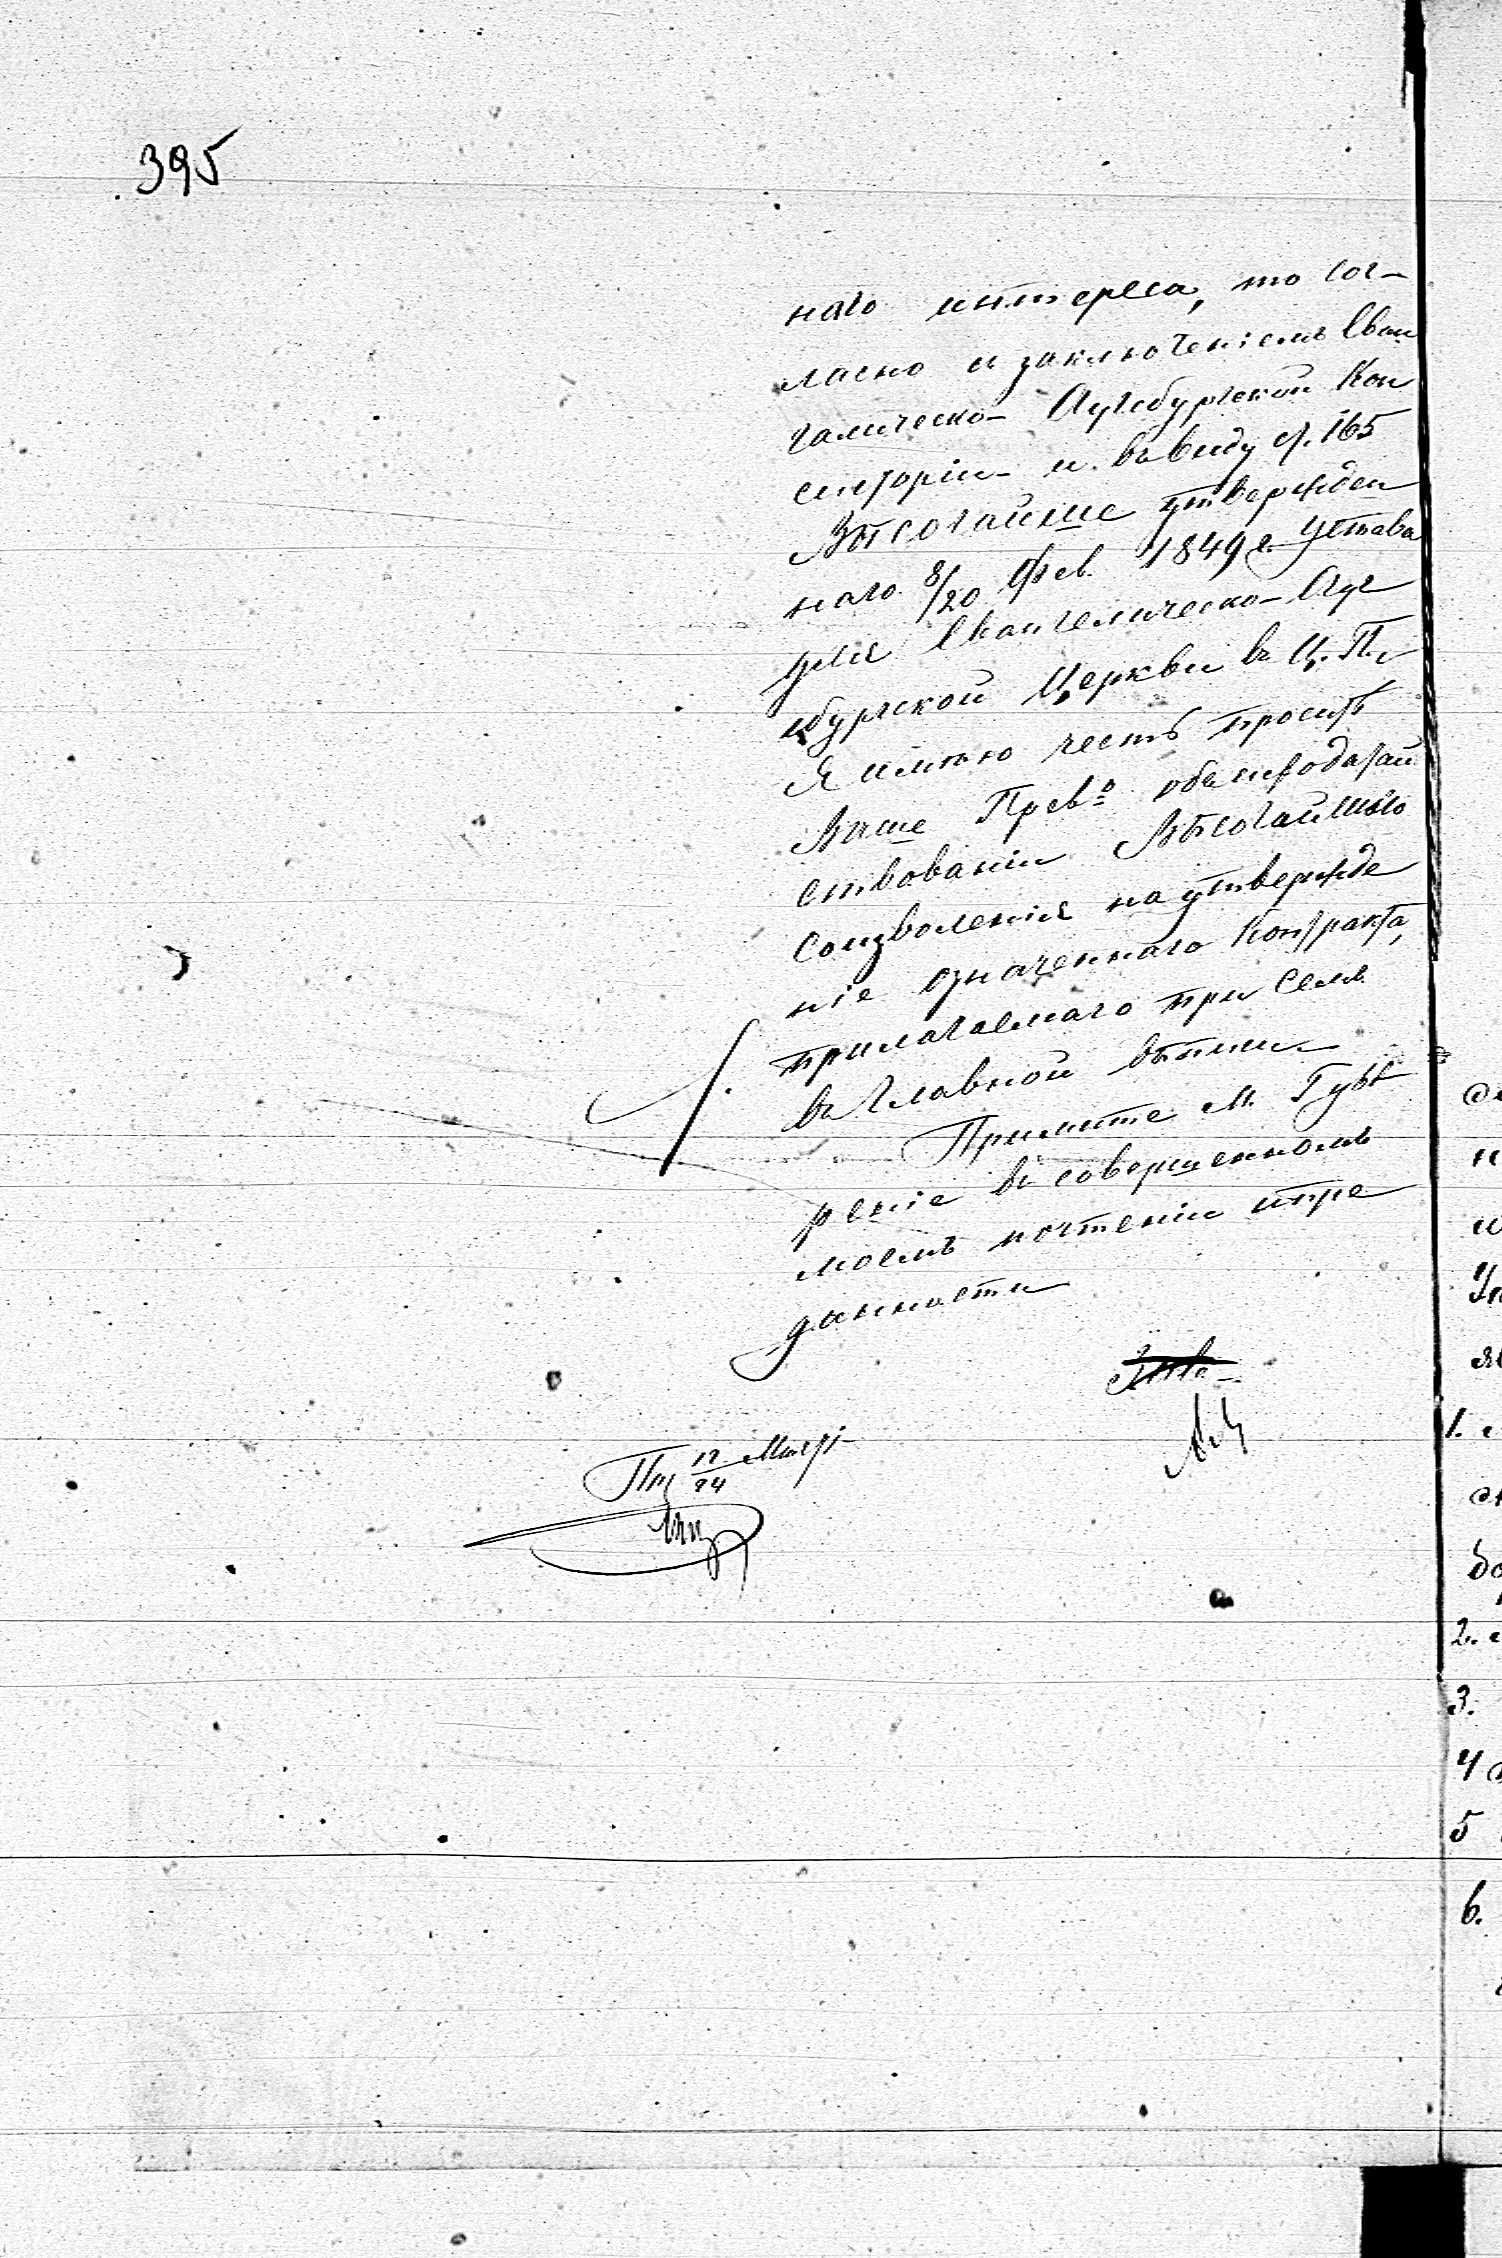 395
наго интереса, то сог-
ласно съ заключеніемъ Еван
гелическо-Аугсбургской Кон
систоріи и въ виду ст. 165
Высочайше утвержден
наго 8/20 Фев. 1849 г. Устава
для Евангелическо-Ауг
сбургской Церкви въ Ц. П.
Я имѣю честь просить
Ваше Прев-о объ исходатай
ствованіи Высочайшаго
соизволенія на утвержде
ніе означеннаго Контракта,
прилагаемаго при семъ
въ главной выписи
Примите М. Г. увѣ
реніе въ совершенномъ
моемъ почтеніи и пре
данности
12/24
1.
2.
3.
4
5
6.